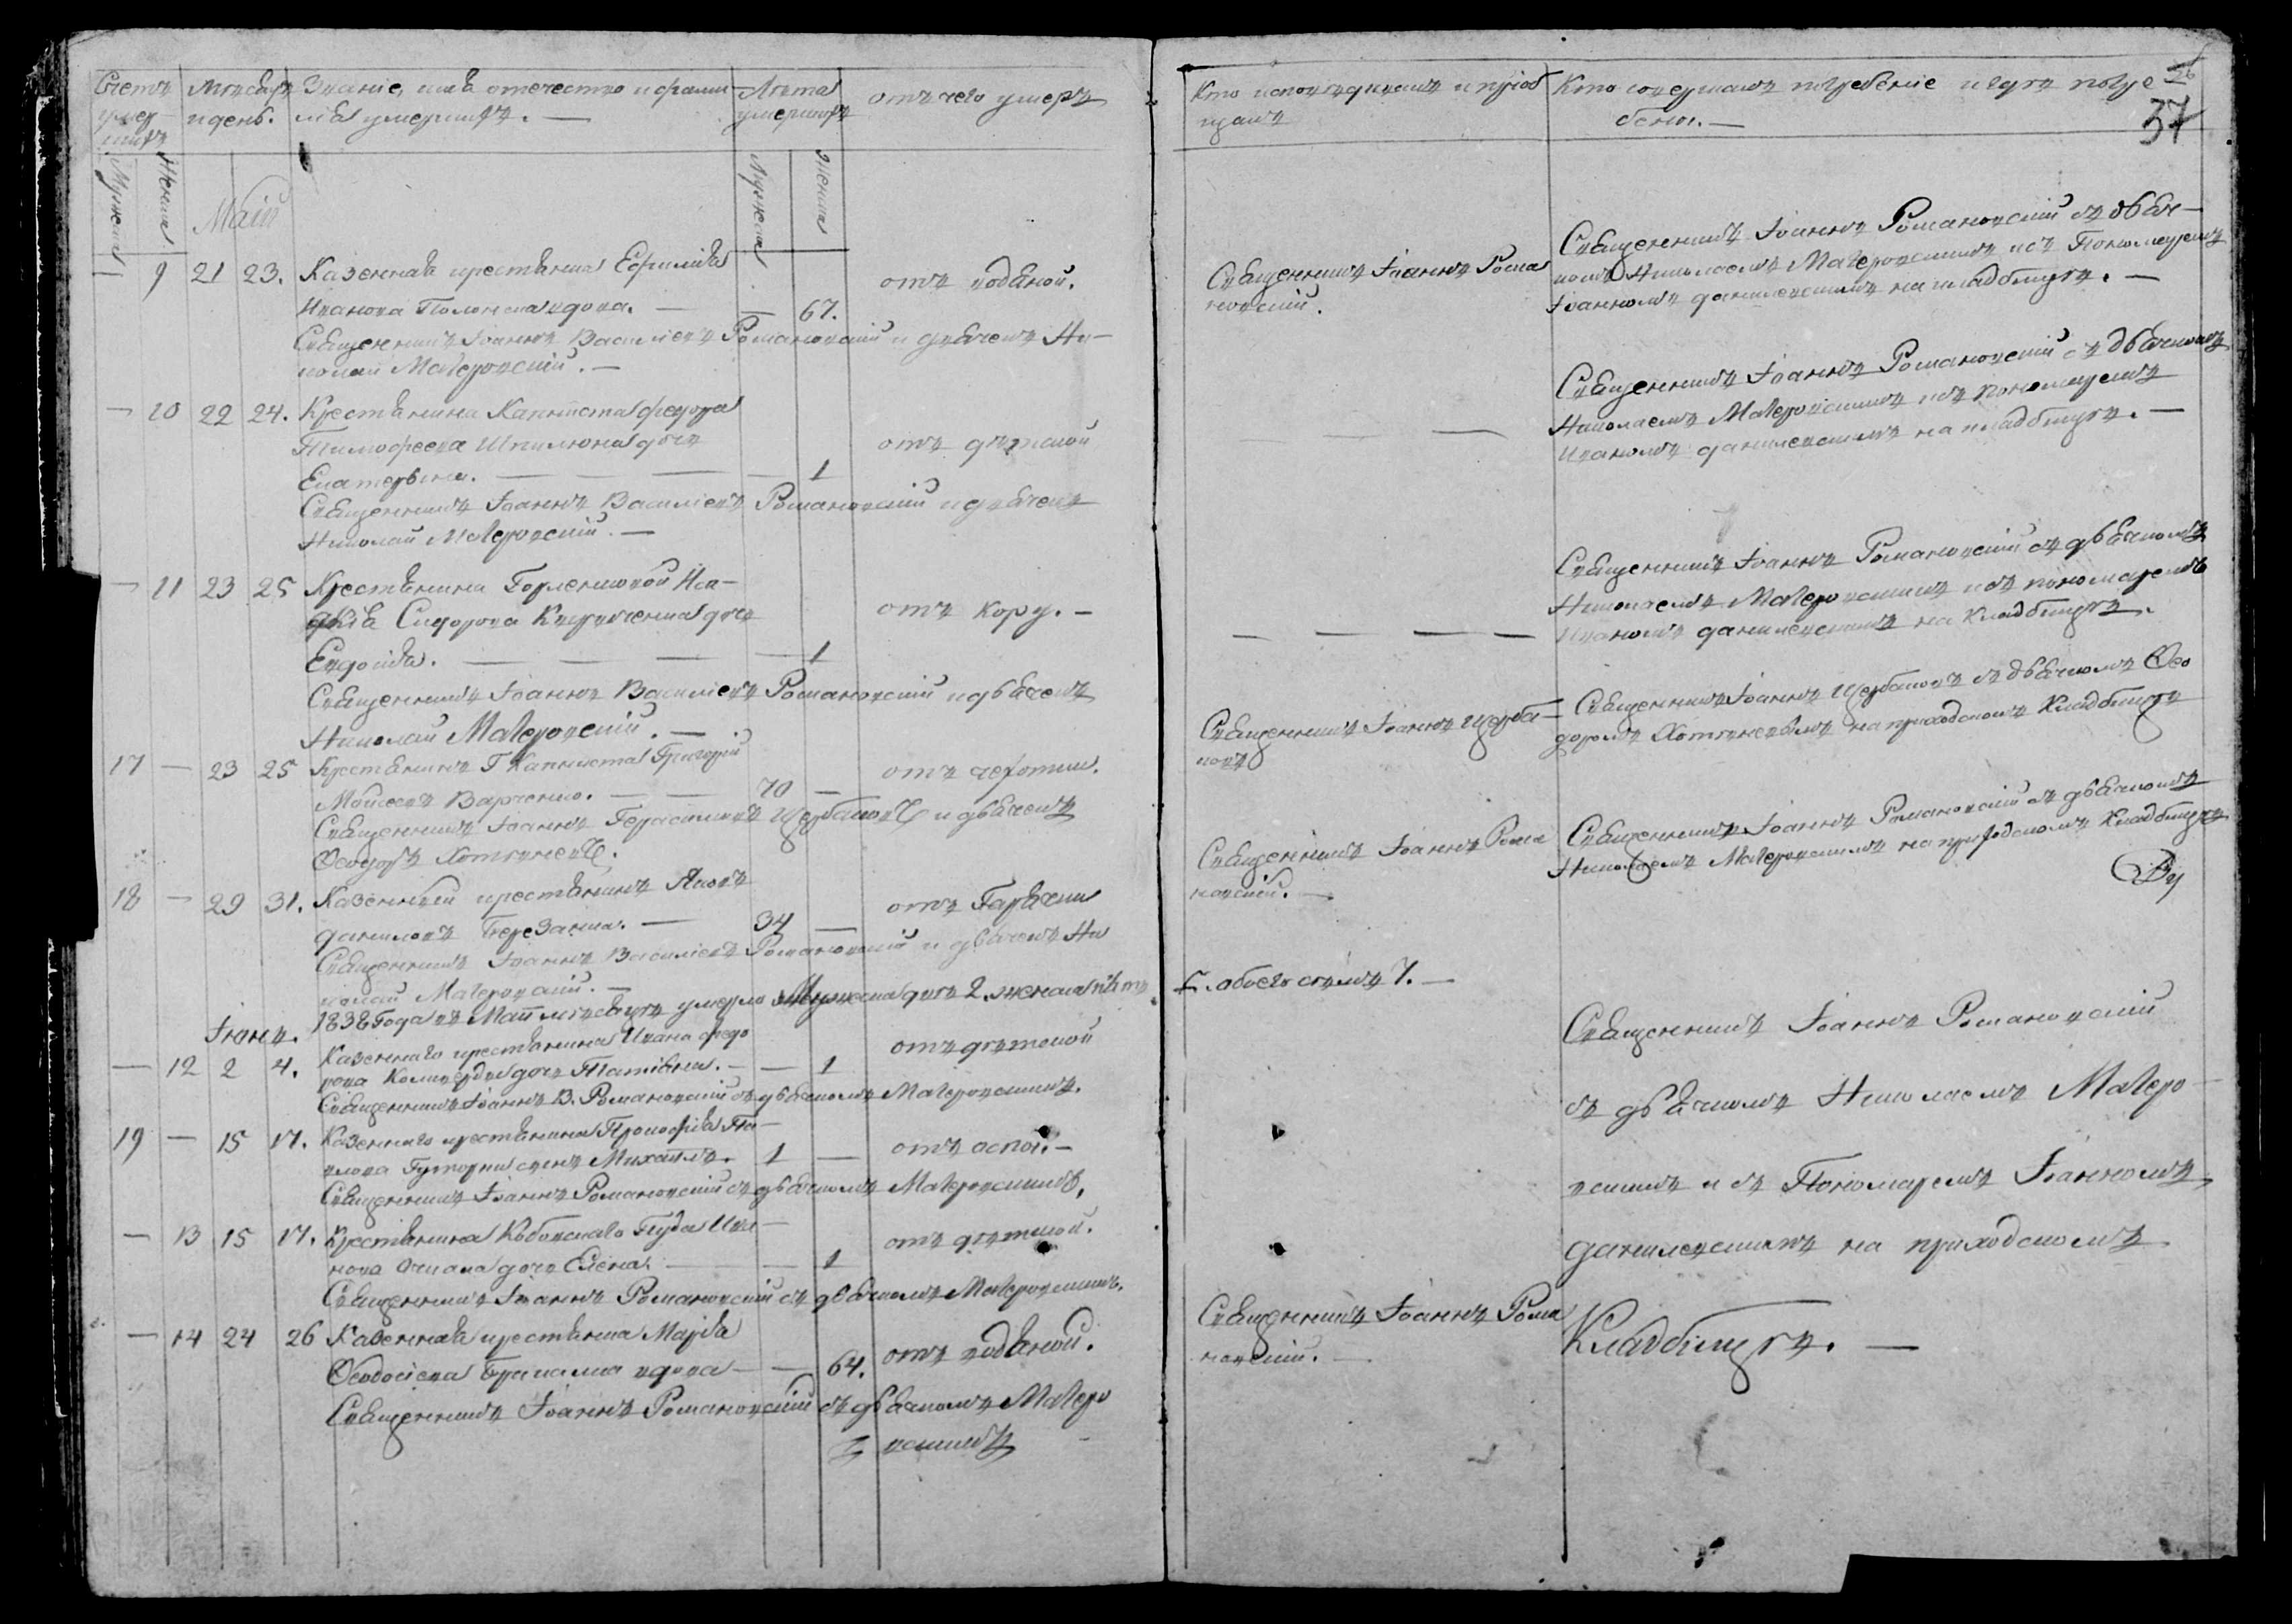 Счетъ умер-
шихъ
Мужеска
Женска
Мѣсяцъ
и день.
Званіе, имя отечество и фами-
лія умершихъ. —
Лѣта
умершихъ
Мужеска
Женска
отъ чего умеръ
Май
— 9 21 23. Казенная крестьянка Евфимія
Иванова Полонска вдова. — — 67. отъ водяной.
Священникъ Іоаннъ Василіевъ Романовскій и дьячекъ Ни-
колай Магеровскій. —
— 10 22 24. Крестьянина Капниста Федора
Тимофеева Шпилюка дочь отъ дѣтской
Екатерина. — — — — 1
Священникъ Іоаннъ Василіевъ Романовскій и дьячекъ
Николай Магеровскій. —
— 11 23 25 Крестьянина
Сидорова дочь отъ кору. —
Евдокія. — — — — 1
Священникъ Іоаннъ Василіевъ Романовскій и дьячекъ
Николай Магеровскій. —
17 — 23 25 Крестьянинъ Г Капниста Григорій
Мойсеевъ Варченко. — — 70 — отъ чехотки.
Священникъ Іоаннъ Герасимовъ Щербаковъ и дьячекъ
Феодоръ Хотинскій.
18 — 29 31. Казенный крестьянинъ Яковъ
Даниловъ Березанка. — 34 — отъ Гарячки
Священникъ Іоаннъ Василіевъ Романовскій и дьячекъ Ни
колай Магеровскій. —
1838 Года въ Маи мѣсяцѣ умерло Мужеска 2. женска
Іюнь.
— 12 2 4. Казенного крестьянина Ивана Федо
рова дочь Татіяна. — — 1 отъ дѣтской
Священникъ Іоаннъ В. Романовскій съ дьячкомъ Магеровскимъ.
19 — 15 17. Казенного крестьянина Прокофія Па-
влова сынъ Михаилъ. 1 — отъ аспы. —
Священникъ Іоаннъ Романовскій съ дьячкомъ Магеровскимъ.
— 13 15 17. Крестьянина Ива-
нова дочь Елена. — — 1 отъ дѣтской.
Священникъ Іоаннъ Романовскій съ дьячкомъ Магеровскимъ.
— 14 24 26 Казенная крестьянка Марія
Феодосіева вдова — — 64. отъ водяной.
Священникъ Іоаннъ Романовскій съ дьячкомъ Магеро
вскимъ
Кто исповѣдывалъ и пріоб
щалъ
Кто совершалъ погребеніе и гдѣ погре
бены. —
26
37
Священникъ Іоаннъ Рома
новскій.
Священникъ Іоаннъ Романовскій съ дьяч-
комъ Николаемъ Магеровскимъ и съ Пономаремъ
Іоанномъ Данилевскимъ на кладбищѣ. —
— —
Священникъ Іоаннъ Романовскій съ дьячкомъ
Николаемъ Магеровскимъ и съ пономаремъ
Иваномъ Данилевскимъ на кладбищѣ. —
— — — —
Священникъ Іоаннъ Романовскій съ дьячкомъ
Николаемъ Магеровскимъ и съ пономаремъ
Иваномъ Данилевскимъ на Кладбищѣ.
Священникъ Іоаннъ Щерба-
ковъ
Священникъ Іоаннъ Щербаковъ съ дьячкомъ Фео
доромъ Хотинскимъ на приходскомъ Кладбищѣ
Священникъ Іоаннъ Рома
новскій. —
Священникъ Іоаннъ Романовскій съ дьячкомъ
Николаемъ Магеровскимъ на приходскомъ Кладбищѣ
обоего 7. —
Священникъ Іоаннъ Романовскій
съ дьячкомъ Николаемъ Магеро-
вскимъ и съ Пономаремъ Іоанномъ
Данилевскимъ на приходскомъ
Священникъ Іоаннъ Рома
новскій. —
Кладбищѣ. —